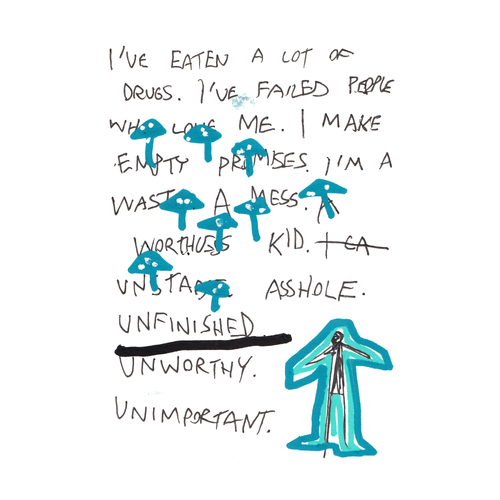 I'VE EATEN A LOT OF
DRUGS. I'VE FAILED PEOPLE
WHO LOVE ME. I MAKE
EMPTY PROMISES. I'M A
WASTE. A MESS. A
WORTHLESS KID. I CA
UNSTABLE ASSHOLE.
UNFINISHED
UNWORTHY.
UNIMPORTANT.